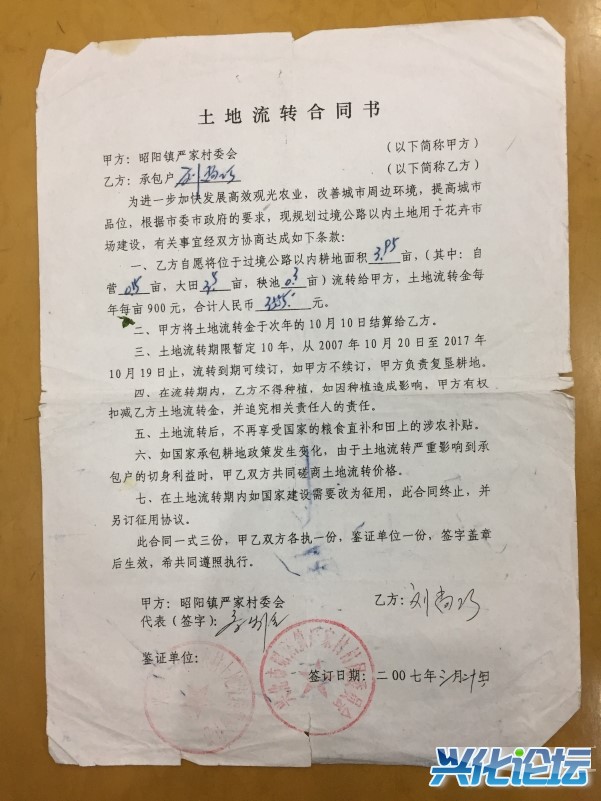 土地流转合同书
甲方：昭阳镇严家村委会 （以下简称甲方）
乙方：承包户 （以下简称乙方）
为进一步加快发展高效观光农业，改善城市周边环境，提高城市
品位，根据市委市政府的要求，现规划过境公路以内土地用于花卉市
场建设，有关事宜经双方协商达成如下条款：
一、乙方自愿将位于过境公路以内耕地面积3.95亩，（其中：自
营 亩，大田 亩，秧池0.3亩）流转给甲方，土地流转金每
年每亩900元，合计人民币3555.元。
二、甲方将土地流转金于次年的10月10日结算给乙方。
三、土地流转期限暂定10年，从2007年10月20日至2017年
10月19日止，流转到期可续订，如甲方不续订，甲方负责复垦耕地。
四、在流转期内，乙方不得种植，如因种植造成影响，甲方有权
扣减乙方土地流转金，并追究相关责任人的责任。
五、土地流转后，不再享受国家的粮食直补和田上的涉农补贴。
六、如国家承包耕地政策发生变化，由于土地流转严重影响到承
包户的切身利益时，甲乙双方共同磋商土地流转价格。
七、在土地流转期内如国家建设需要改为征用，此合同终止，并
另订征用协议。
此合同一式三份，甲乙双方各执一份，鉴证单位一份，签字盖章
后生效，希共同遵照执行。
甲方：昭阳镇严家村委会 乙方：刘
代表（签字）：
鉴证单位：
签订日期：二00七年 月二十 日
兴化论坛